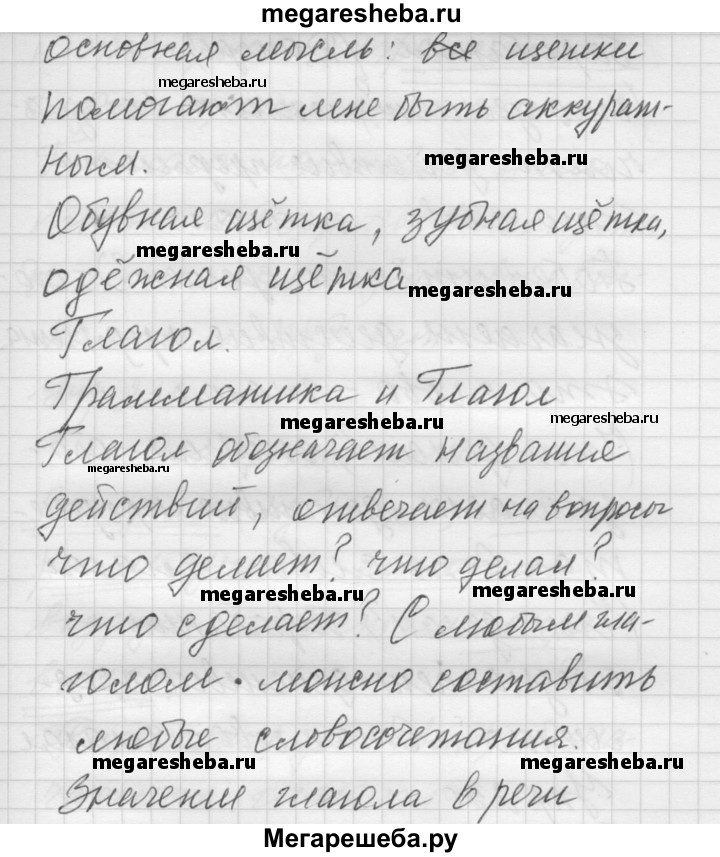 megaresheba.ru
основная мысль: все щетки
megaresheba.ru
помогают мне быть аккурат-
megaresheba.ru
ным.
Обувная щётка, зубная щётка,
megaresheba.ru
одёжная щётка
megaresheba.ru
Глагол.
Грамматика и Глагол
megaresheba.ru
megaresheba.ru
Глагол обозначает названия
megaresheba.ru
действий, отвечает на вопросы
что делает? что делал?
megaresheba.ru
megaresheba.ru
что сделает? С любым гла-
голом можно составить
любые словосочетания.
megaresheba.ru
megaresheba.ru
Значение глагола в речи
Мегарешеба.ру